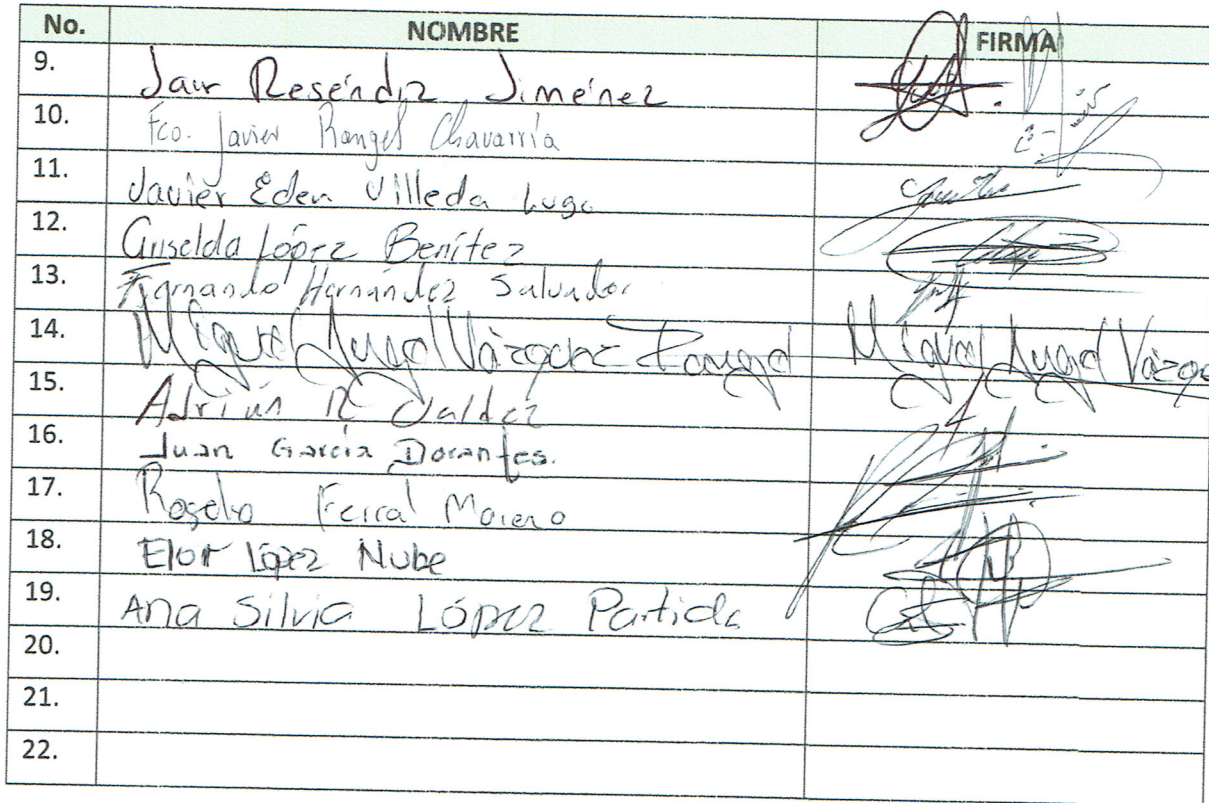 No. NOMBRE FIRMA
9. Jair Reséndiz Jiménez
10. Fco. Javier Rangel Chavarría
11. Javier Eden Villeda Lugo
12. Griselda López Benítez
13. Fernando Hernández Salvador
14. Miguel Angel Vázquez Rangel Miguel Angel Vázqu
15. Adrián R Valdez
16. Juan García Dorantes.
17. Rogelio Ferral Moreno
18. López Nube
19. Ana Silvia López Partida
20.
21.
22.